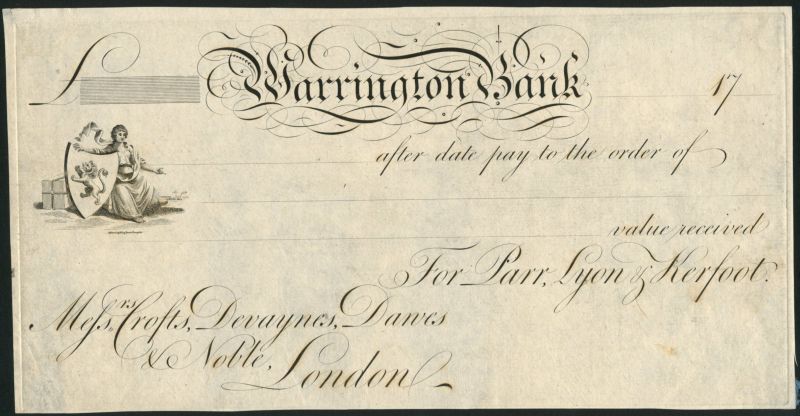 £ Warrington Bank 17
after date pay to the order of
value received
For Parr, Lyon & Kerfoot.
Meſsrs. Crofts, Devaynes, Dawes
& Noble, London